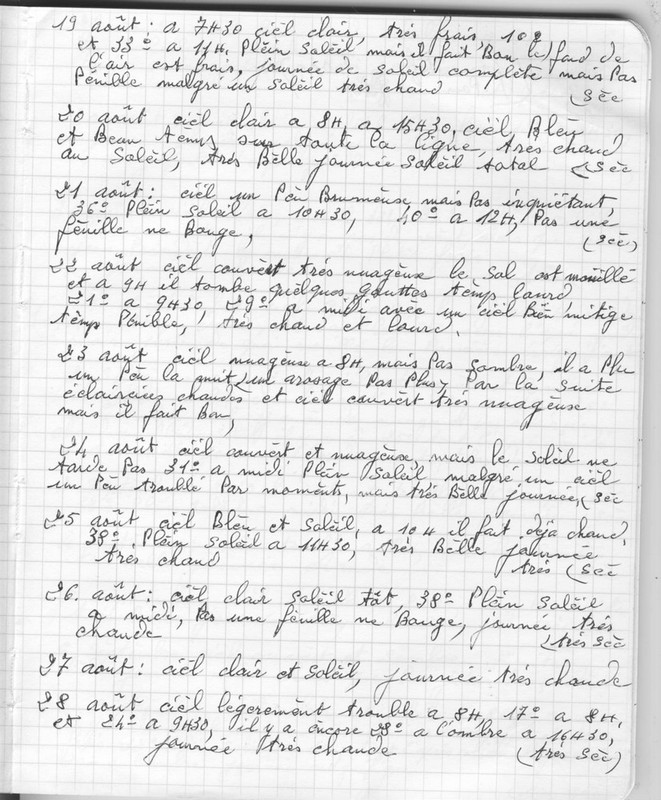 19 août : a 7H30 cièl clair, très frais 10º
et 33º a 11H. Plein Soléil mais il fait Bon le fond de
l'air est frais, journée de Soléil complète mais Pas
Pénible malgré un Soléil trés chaud (Séc
20 août ciél clair a 8H, a 15H30, ciél, Bléu
et Beau témps sur toute la ligne, très chaud
au Soléil, très Bèlle journée Soléil total (Séc
21 août : ciél un Péu Brumeuse mais Pas inquiétant,
36º Plein Soléil a 10H30, 40º a 12H, Pas une
féuille ne Bouge, (Séc)
22 août ciél couvèrt trés nuagéuse le Sol est mouillé
et a 9H il tombe quélques gouttes témps lourd
21º a 9H30 29º a midi avec un ciél Bién mitigé
témps Pénible, très chaud et lourd.
23 août ciél nuagéuse a 8H, mais Pas sombre, il a Plu
un Péu la nuit, un arosage Pas Plus, Par la suite
éclaircies chaudes et ciél couvèrt trés nuagéuse
mais il fait Bon,
24 août ciél couvért et nuagéuse, mais le Soléil ne
tarde Pas 31º a midi Pléin Soléil malgré un ciél
un Péu troublé Par moménts, mais trés Bélle journée, (Séc
25 août ciél Bléu et Soléil, a 10H il fait déja chaud,
38º Pléin Soléil a 11H30, très Bélle journée
très chaud très (Séc
26. août : ciél clair Soléil tôt, 38º Pléin Soléil
a midi, Pas une féuille ne Bouge, journée trés
chaude (trés Séc
27 août : ciél clair et Soléil, journée trés chaude
28 août ciél légerement trouble a 8H, 17º a 8H,
et 24º a 9H30, il y a éncore 28º a l'ombre a 16H30,
journée trés chaude (trés Séc)